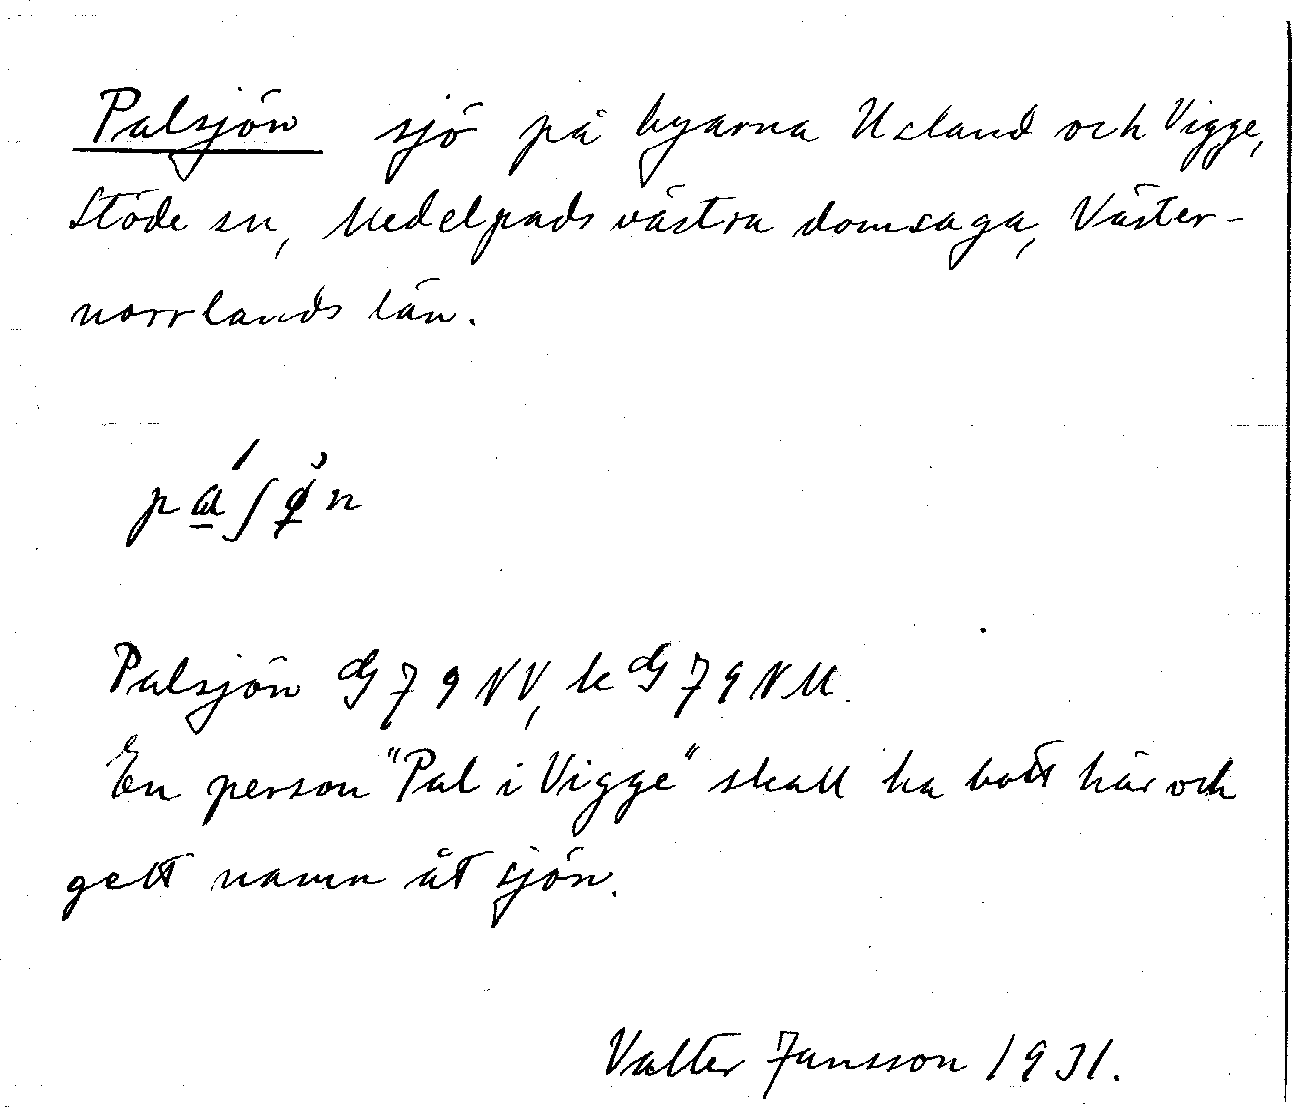 Palsjön sjö på byarna Usland och Vigge,
Stöde sn, Medelpads västra domsaga, Väster-
norrlands län.
Palsjön 79 NV, k 79 NM.
En person "Pal i Vigge" skall ha bott här och
gett namn åt sjön.
Valter Jansson 1931.